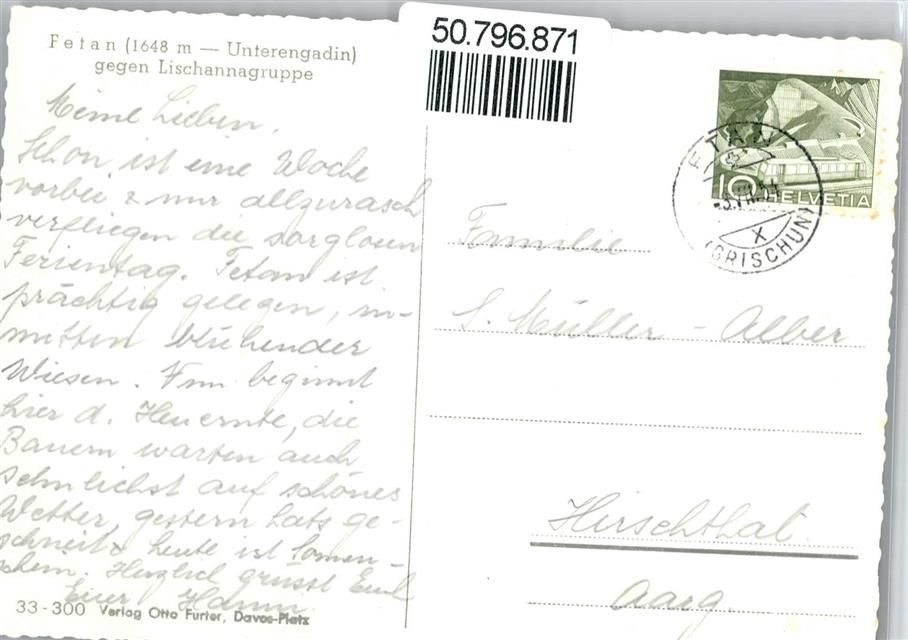 Fetan (1648 m — Unterengadin)
gegen Lischannagruppe
50.796.871
Meine Lieben,
Schon ist eine Woche
vorbei & nur allzurasch
verfliegen die sorglosen
Ferientag. Fetan ist
prächtig gelegen, in-
mitten blühender
Wiesen. Nun beginnt
hier d. Heuernte, die
Bauern warten auch
sehnlichst auf schönes
Wetter, gestern hats ge-
schneit & heute ist Sonnen-
schein. Herzlich grüsst Euch
Euer
33-300 Verlag Otto Furter, Davos-Platz
FETAN
X
(GRISCHUN)
10 HELVETIA
Familie
S. Müller - Alber
Hirschthal
Aarg.